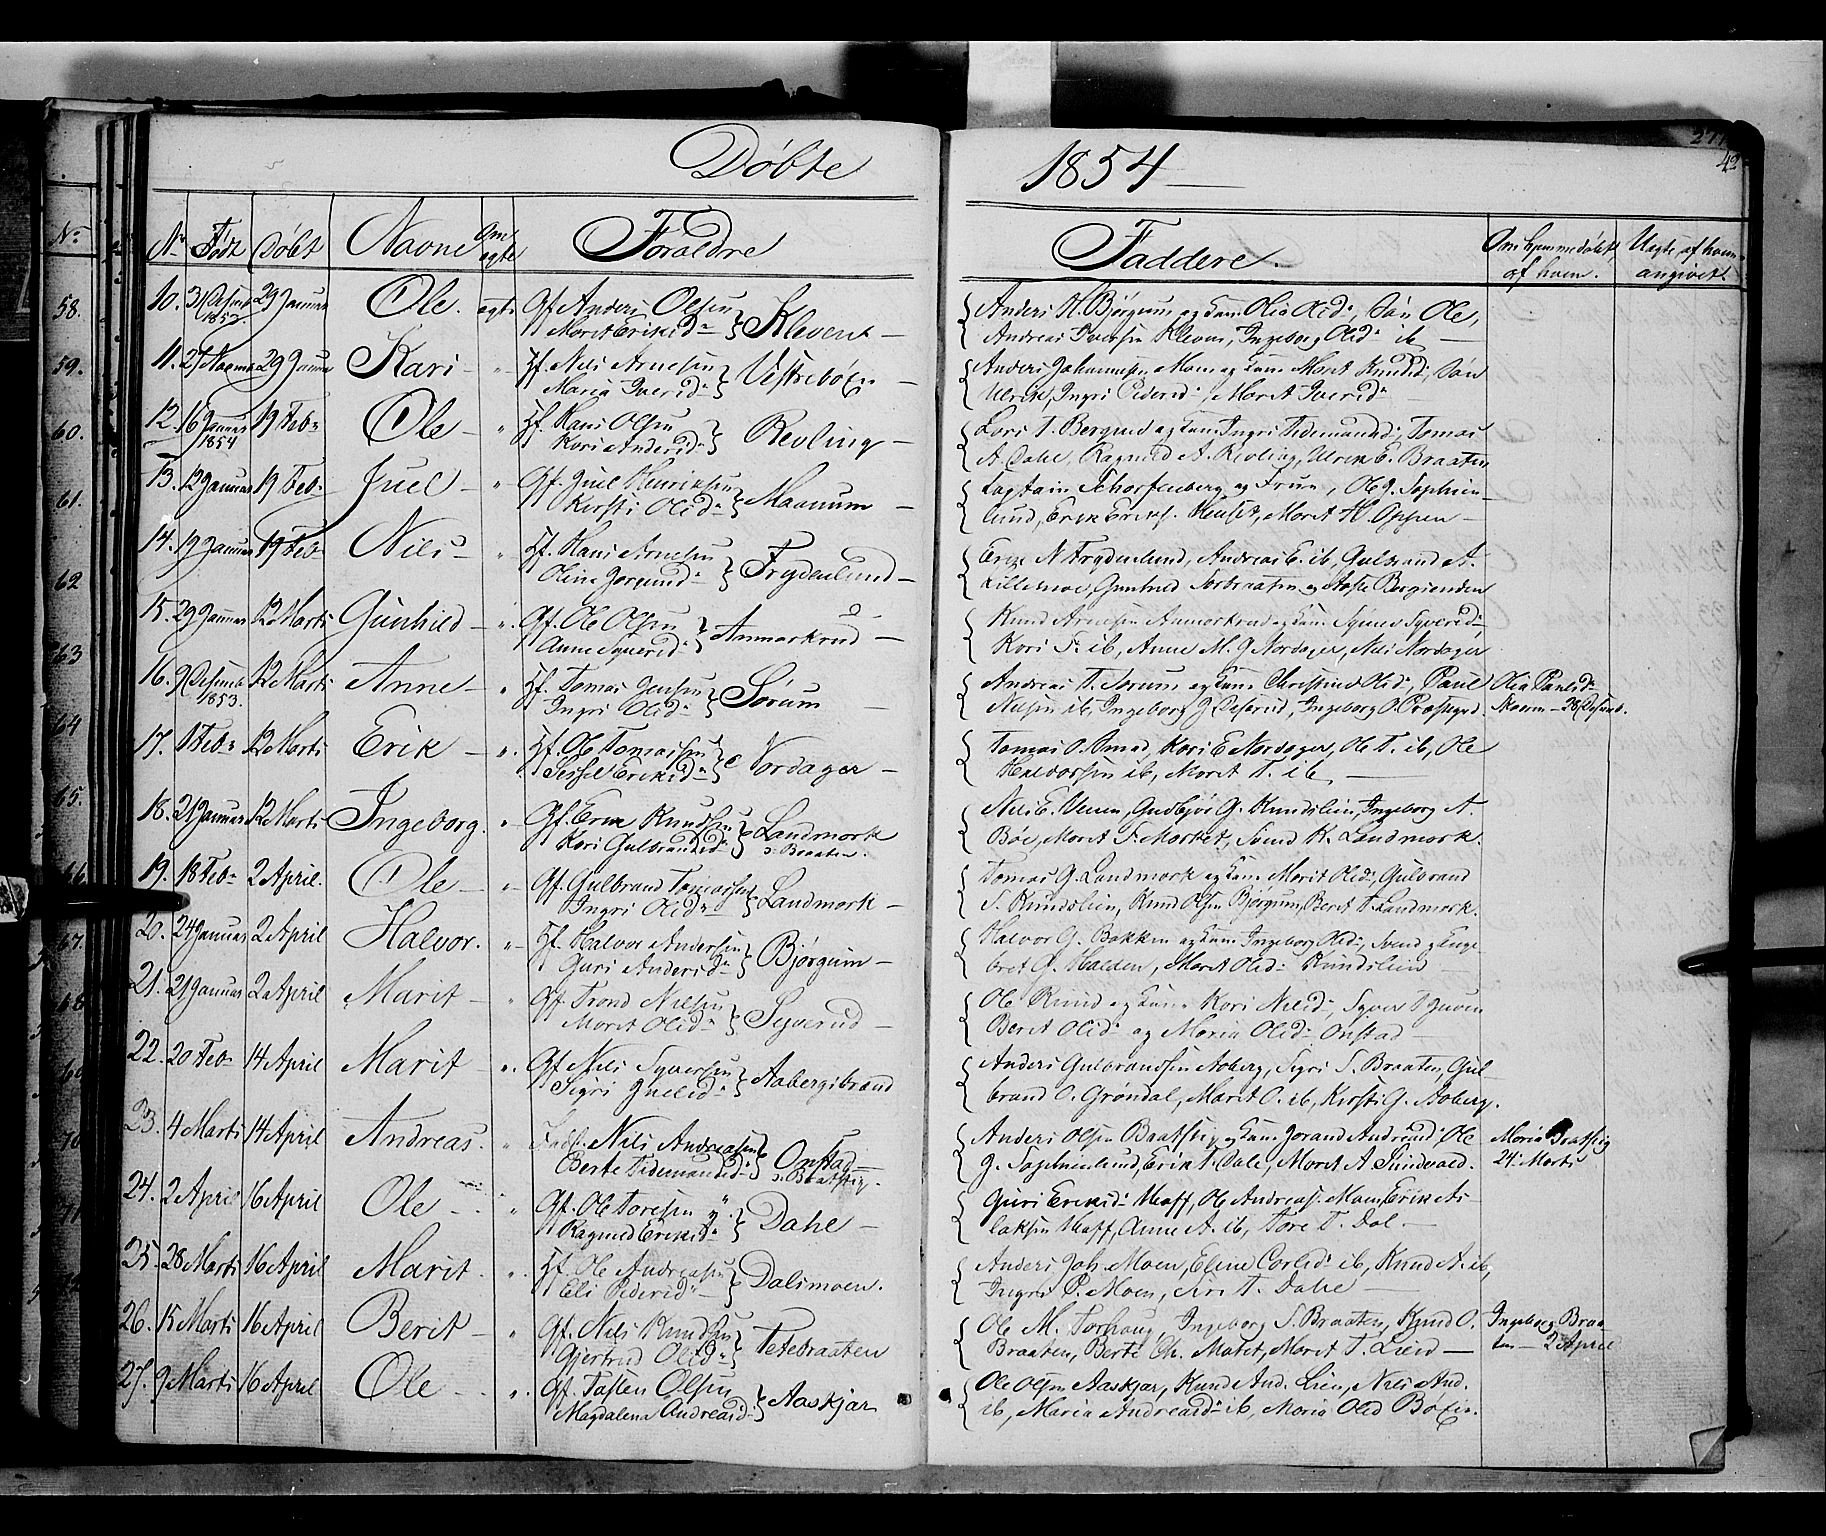 Døbte 1854
No Født Døbt Navne Om ægte Forældre Faddere. Om hjemmedøbt, af hvem. Uægte, af hvem angivet.
10. 31 Desemb 1853. 29 Januar Ole ægte Gf. Anders Olsen
Marit Eriksd. Klevene
Anders H. Bjørgum og Kone Olia Olsd., Søn Ole,
Andreas Iversen Kleven, Ingeborg Olsd. ib
11. 27 Novemb 29 Januar Kari Hf. Nils Arnesen
Maria Iversd. Vestrebøen
Anders Johannesen Moen og Kone Marit Knudsd., Søn
Ulrik, Ingri Pedersd., Marit Iversd.
12. 16 Januar 1854 19 Feb. Ole Hf. Hans Olsen
Kari Andersd. Revling
Lars T. Bergrud og Kone Ingri Tidemandsd., Tomas
A. Dahl, Ragnild A. Revling, Ulrik E. Braaten
13. 12 Januar 19 Feb. Juel Gf. Juel Henriksen
Kirsti Olsd. Maanum
Captain Scharfenberg og Frue, Ole J. Sophien-
lund, Erik Eriks. Heuset, Marit H. Oppen
14. 19 Januar 19 Feb. Nils Hf. Hans Arnesen
Oline Jørgensd. Frydenlund
Erik N. Frydenlund, Andreas E. ib, Gulbrand A.
Lillemoe, Gunhild Sørbraaten og Bergsenden
15. 29 Januar 12 Marts Gunhild Gf. Ole Olsen
Anne Syversd. Anmarkrud
Knud Arnesen Anmarkrud og Kone Synev Syversd.,
Kari S. ib, Anne M. J. Nordager, Nils Nordager
16. 9 Desemb 1853. 12 Marts Anne Hf. Tomas Jensen
Ingri Olsd. Sørum
Andreas T. Sørum og Kone Christine Olsd., Paul
Nilsen ib, Ingeborg J., Ingeborg O. Præstegrd. Olia Paulsd.
Skaren - 28 Desemb.
17. 1 Feb. 12 Marts Erik Hf. Ole Tomassen
Sissel Eriksd. Nordager
Tomas O. Smed, Kari E. Nordager, Ole T. ib, Ole
Halvorsen ib, Marit T. ib,
18. 21 Januar 12 Marts Ingeborg. Gf. Erik Knudsen
Kari Gulbrandsd. Landmark
s. Braaten.
Nils E. Veneen, Gudbjør G. Kundslien, Ingeborg A.
Bøe, Marit S. Market, Svend K. Landmark.
19. 18 Feb. 2 April. Ole Gf. Gulbrand Tomassen
Ingri Olsd. Landmark
Tomas G. Landmark og Kone Marit Olsd., Gulbrand
S. Kundslien, Knud Olsen Bjørgum, Berit T. Landmark.
20. 24 Januar 2 April Halvor. Hf. Halvor Andersen
Guri Andersd. Bjørgum
Halvor G. Bakken og Kone Ingeborg Olsd., Svend og Enge-
bret G. Halden, Marit Olsd. Kundslien
21. 21 Januar 2 April Marit Gf. Trond Nilsen
Marit Olsd. Syverud
Ole Ruud og Kone Kari Nilsd., Syver T. Juven
Berit Olsd. og Maria Olsd. Onstad
22. 20 Feb. 14 April Marit Gf. Nils Syversen
Sigri Juelsd. Aabergsbraaten
Anders Gulbrandsen Aaberg, Sigri S. Braaten, Gul-
brand O. Grøndal, Marit O. ib, Kirsti G. Aaberg.
23. 4 Marts 14 April Andreas. Inds. Nils Andreasen
Berte Tidemandsd. Onstad
s. Baatstø.
Anders Olsen Baatstø og Kone Jørand Andreasd., Ole
J. Sophienlund, Erik T. Dale, Marit A. Sundvold. Maria Baatstø
24. Marts
24. 2 April 16 April Ole Gf. Ole Toresen
Ragnild Eriksd. Dahle
Guri Eriksd. Haff, Ole Andreas. Moen, Erik As-
laksen Haff, Anne A. ib, Tore T. Dal.
25. 28 Marts 16 April Marit. Hf. Ole Andreasen
Eli Pedersd. Dalsmoen.
Anders Joh. Moen, Eline Carlsd. ib, Knud A. ib,
Ingrid P. Moen, Siri T. Dahle
26. 15 Marts 16 April Berit Gf. Nils Knudsen
Gjertrud Olsd. Tetebraaten
Ole M. Torhaug, Ingeborg S. Braaten, Knud O. Ingeborg Braa-
Braaten, Berte Ch. Motet, Marit T. Lien ten - 2 April
27. 9 Marts 16 April Ole Gf. Tosten Olsen
Magdalena Andreasd. Aaskjær
Ole Olsen Aaskjær, Knud And. Lien, Nils And.
ib, Maria Andreasd. ib, Maria Olsd. Bøen.
No
58.
59.
60.
61.
62
63
64
65.
66
67.
68
69
70
71
42